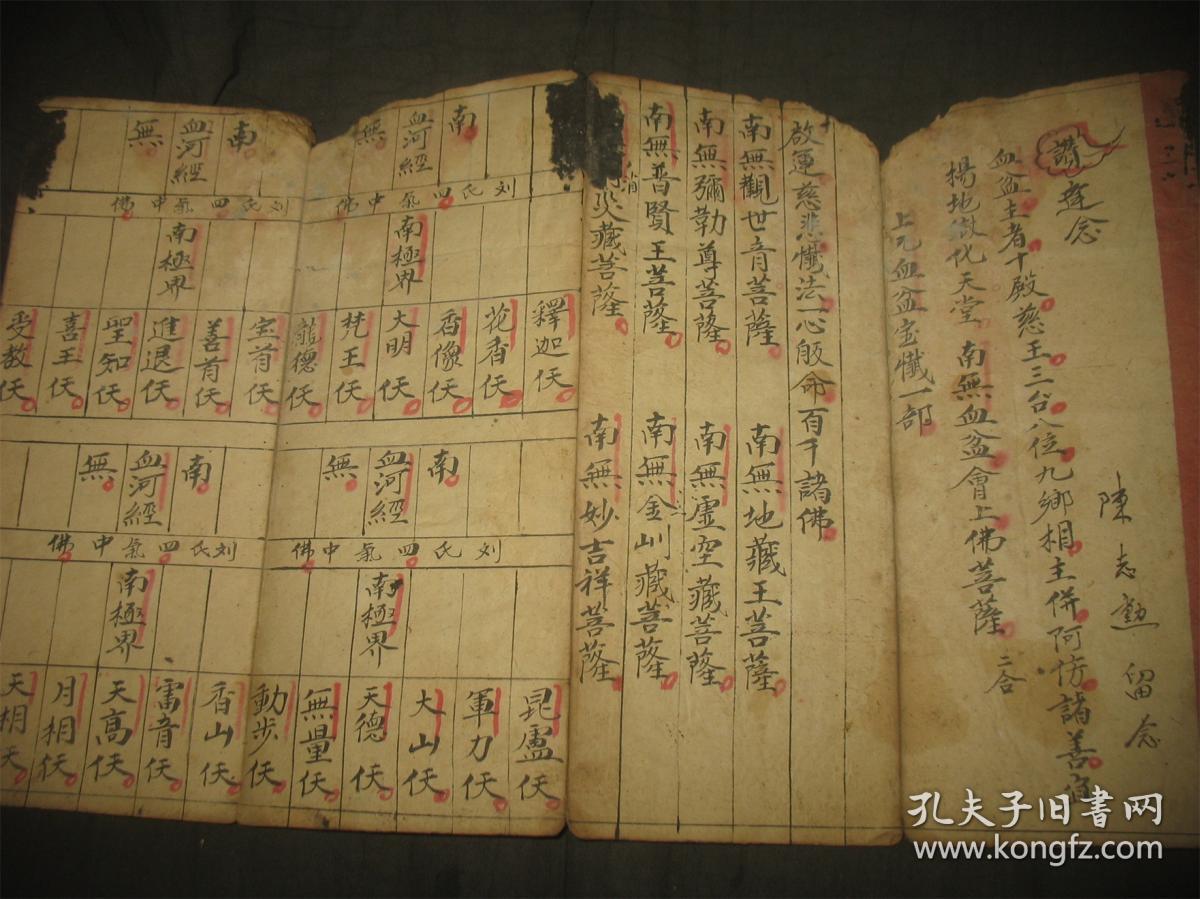 陳志勲留念
讚 舉念
血盆主者十殿慈王三台八位九鄉相主併阿傍諸善
揚地獄化天堂 南無血盆會上佛菩薩 二合
上元血盆宝懺一部
啟運慈悲懺法一心皈命百千諸佛
南無觀世音菩薩 南無地藏王菩薩
南無彌勒尊菩薩 南無虛空藏菩薩
南無普賢王菩薩 南無金剛藏菩薩
消災藏菩薩 南無妙吉祥菩薩
南 血河經 無
刘氏四氣中佛
南極界
釋迦仸
花香仸
香像仸
大明仸
梵王仸
龍德仸
南 血河經 無
刘氏四氣中佛
南極界
宝首仸
善首仸
進退仸
聖知仸
喜王仸
受教仸
南 血河經 無
刘氏四氣中佛
南極界
昆盧仸
軍力仸
大山仸
天德仸
無量仸
南 血河經 無
刘氏四氣中佛
南極界
動步仸
香山仸
雷音仸
天高仸
月相仸
天相天
孔夫子旧书网
www.kongfz.com